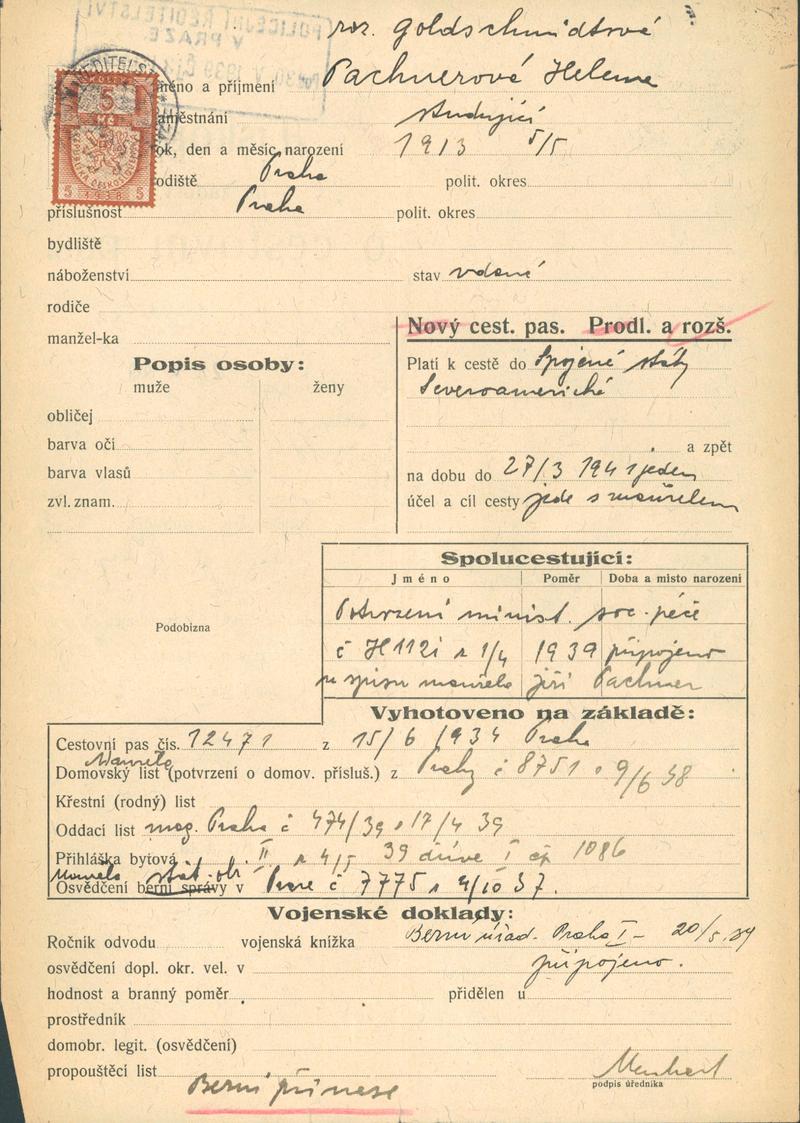 POLICEJNÍ ŘEDITELSTVÍ
V PRAZE
roz. Goldschmidtrová
jméno a příjmení Pachnerová Helena
zaměstnání studující
rok, den a měsíc narození 1913 5/5
rodiště Praha polit. okres
příslušnost Praha polit. okres
KOLEK
5
Kč
REPUBLIKA ČESKOSLOVENSKÁ
5 1938 5
bydliště
náboženství stav vdaná
rodiče
manžel-ka
Nový cest. pas. Prodl. a rozš.
Popis osoby:
muže ženy
obličej
barva očí
barva vlasů
zvl. znam.
Platí k cestě do Spojené státy
Severoamerické
a zpět
na dobu do 27/3 1941 jeden
účel a cíl cesty jede s manželem
Podobizna
Spolucestující:
Jméno Poměr Doba a místo narození
Potvrzení minist. soc. péče
č H112i z 1/4 1939 připojeno
u spisu manžela Jiří Pachner
Vyhotoveno na základě:
Cestovní pas čís. 12471 z 15/6 1934 Praha
Manžela
Domovský list (potvrzení o domov. přísluš.) z Prahy č 8751 9/6 38
Křestní (rodný) list
Oddací list mag. Praha č 474/39 17/4 39
Přihláška bytová II z 4/5 39 dříve I čp 1086
Manžela stát. obč.
Osvědčení berní správy v Praze č 7775 z 4/10 37.
Vojenské doklady:
Ročník odvodu vojenská knížka Berní úřad. Praha I - 20/5 39
osvědčení dopl. okr. vel. v připojeno.
hodnost a branný poměr přidělen u
prostředník
domobr. legit. (osvědčení)
propouštěcí list Berní přinese
podpis úředníka